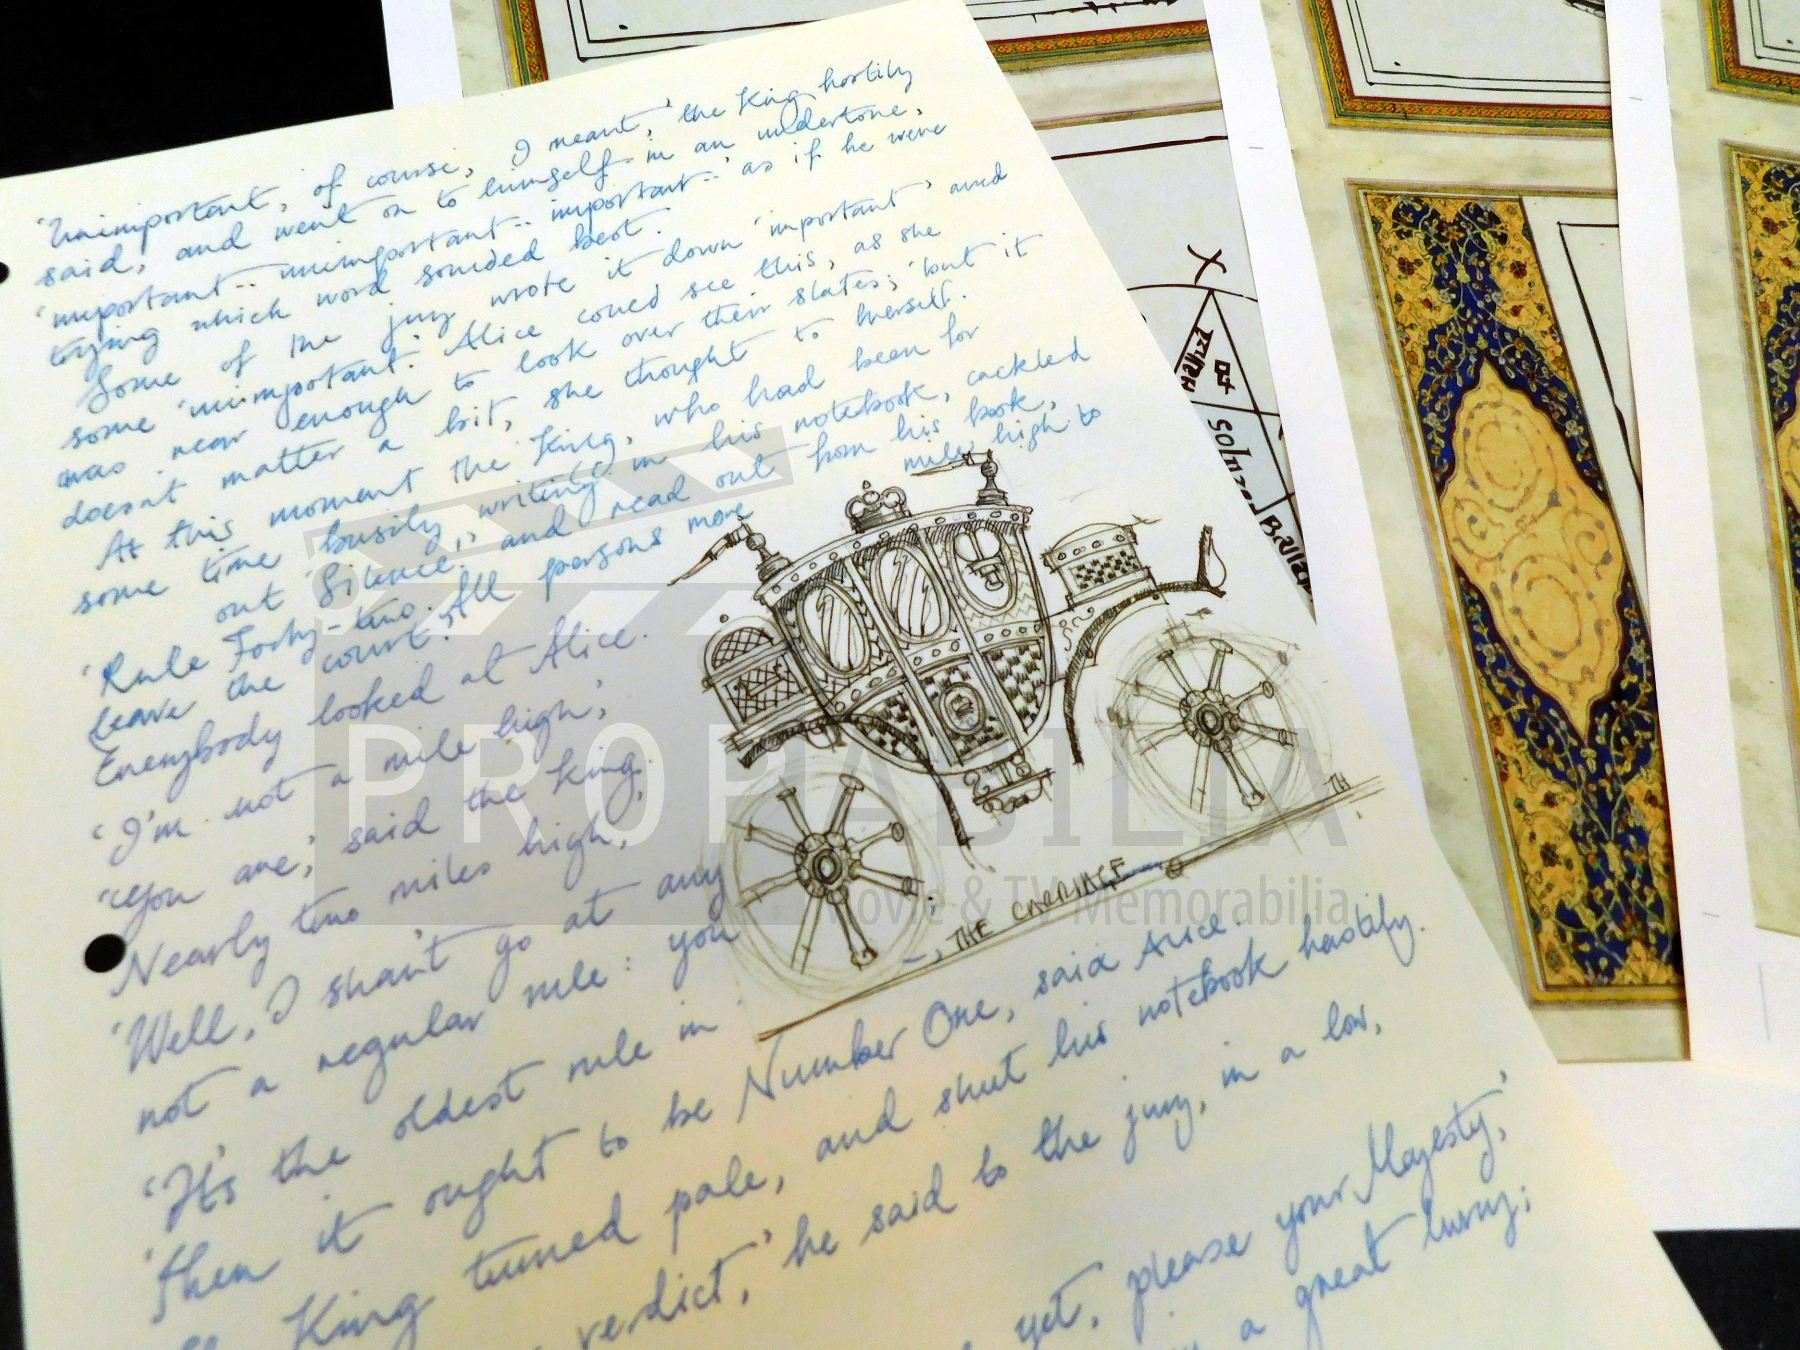 'Unimportant, of course, I meant,' the King hastily
said, and went on to himself in an undertone,
'important.. unimportant.. important..' as if he were
trying which word sounded best.
Some of the jury wrote it down 'important' and
some 'unimportant.' Alice could see this, as she
was near enough to look over their slates; 'but it
doesn't matter a bit, she thought to herself.
At this moment the King, who had been for
some time busily writing in his notebook, cackled
out 'Silence,' and read out from his book,
'Rule Forty-two. All persons more mile high to
leave the court.'
Everybody looked at Alice.
'I'm not a mile high,'
'You are,' said the King,
Nearly two miles high,
'Well, I shan't go at any
not a regular rule: you
'It's the oldest rule in
'Then it ought to be Number One, said Alice.
King turned pale, and shut his notebook hastily.
verdict,' he said to the jury, in a low,
yet, please your Majesty,'
a great hurry;
THE CARRIAGE
TH
PROPABILIA
Movie & TV Memorabilia